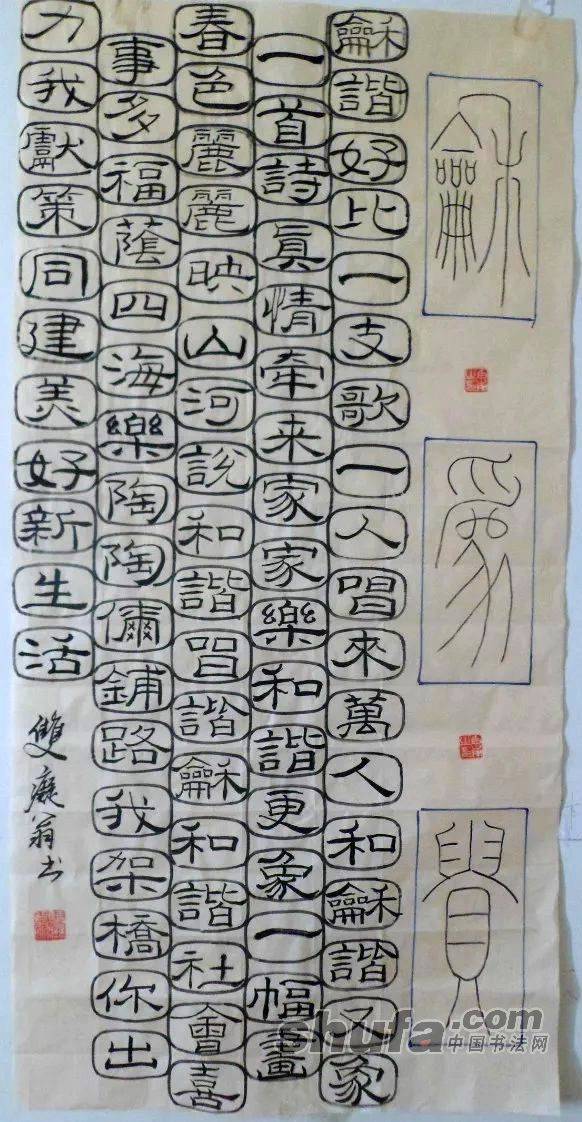 龢爲貴
龢諧好比一支歌一人唱來萬人和龢諧又象
一首詩眞情牵来家家樂和諧更象一幅畫
春色麗麗映山河說和諧昌諧龢和諧社會喜
事多福蔭四海樂陶陶儞鋪路我架橋你出
力我獻策同建美好新生活
雙癡翁书
shufa.com
中国书法网